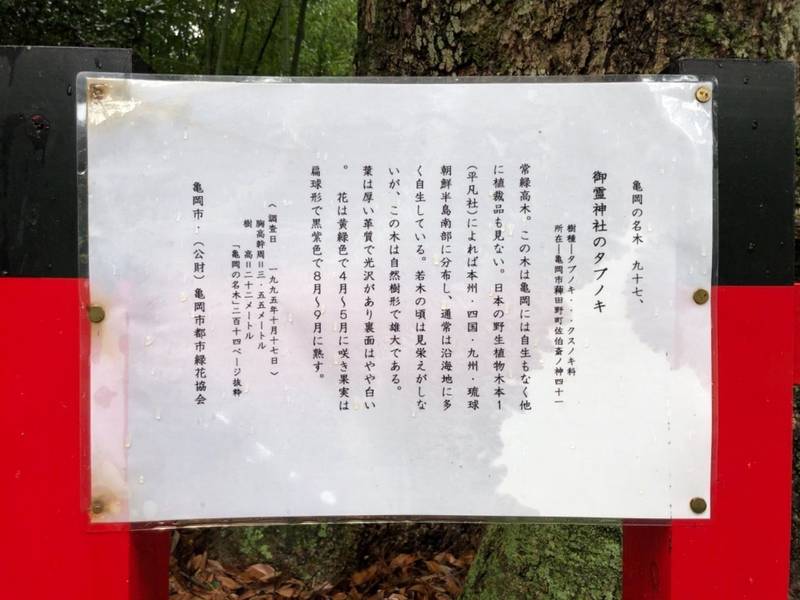 亀岡の名木　九十七、
御霊神社のタブノキ
樹種―タブノキ・・・クスノキ科
所在―亀岡市薭田野町佐伯斎ノ神四十一
常緑高木。この木は亀岡には自生もなく他
に植裁品も見ない。日本の野生植物木本1
（平凡社）によれば本州・四国・九州・琉球
朝鮮半島南部に分布し、通常は沿海地に多
く自生している。若木の頃は見栄えがしな
いが、この木は自然樹形で雄大である。
葉は厚い革質で光沢があり裏面はやや白い
。　花は黄緑色で4月～5月に咲き果実は
扁球形で黒紫色で8月～9月に熟す。
（調査日　一九九五年十月十七日）
胸高幹周＝三・五五メートル
樹　　高＝二十二メートル
「亀岡の名木」二百十四ページ抜粋
亀岡市・（公財）亀岡市都市緑花協会